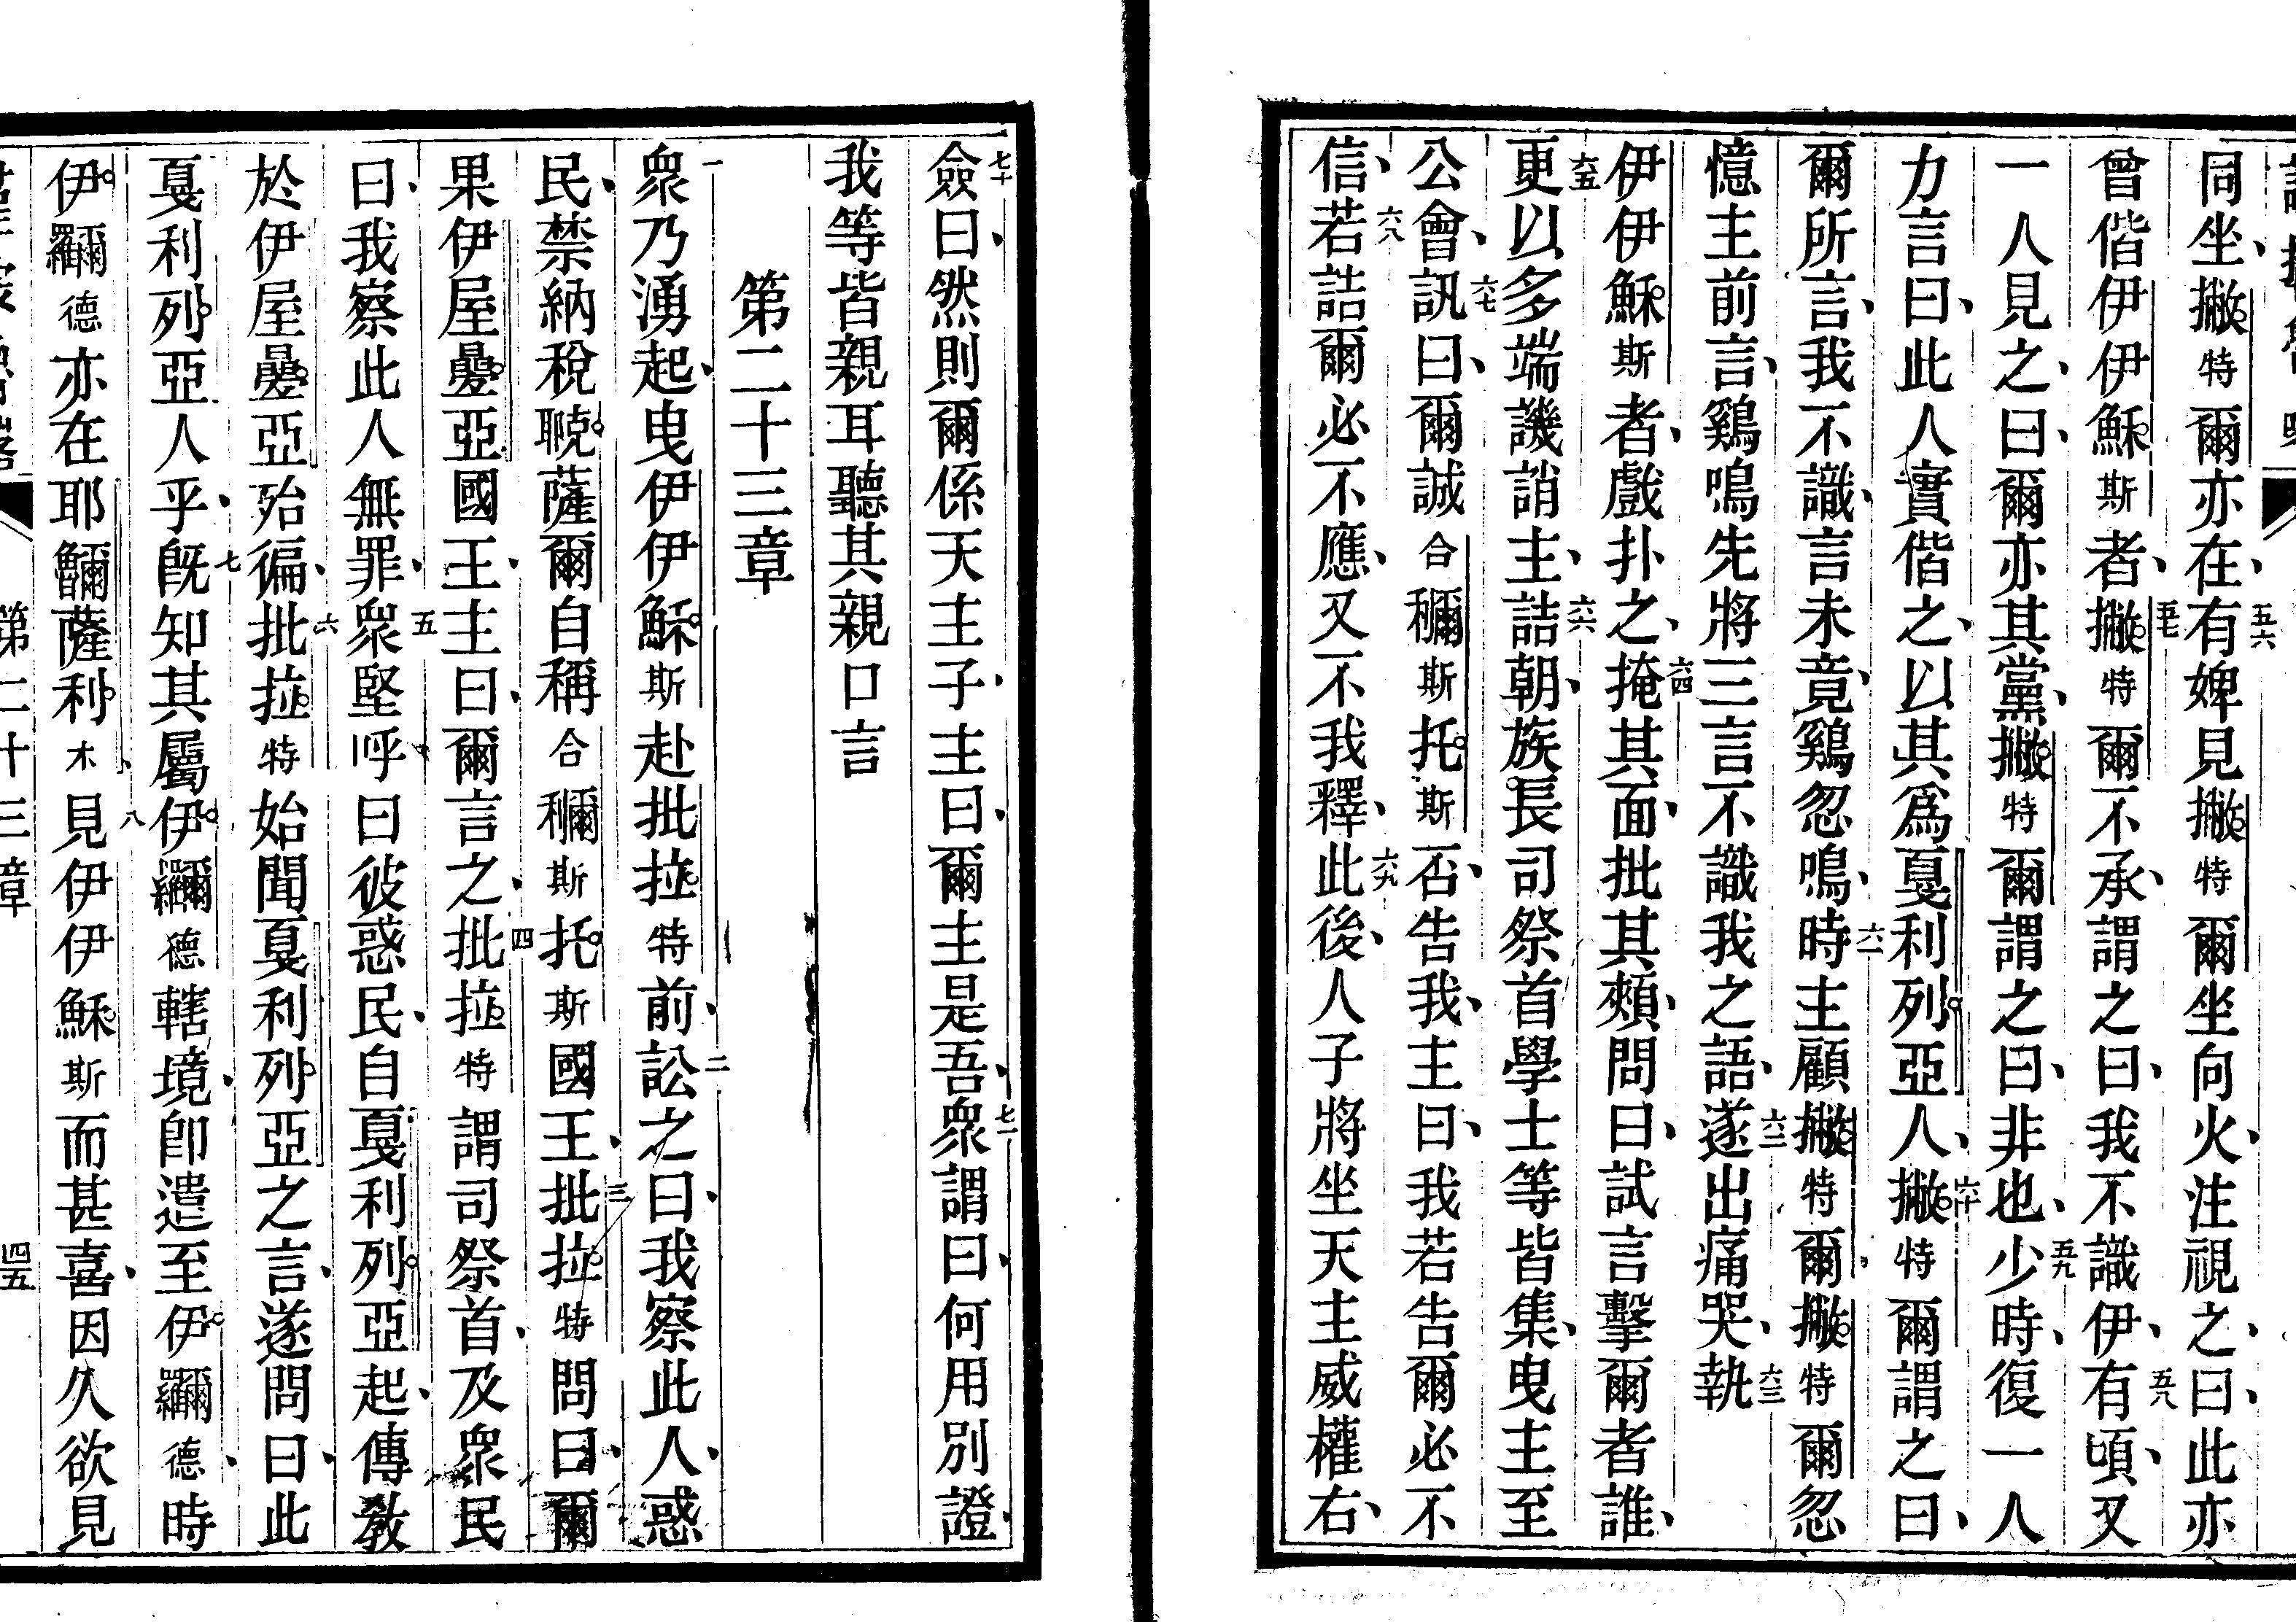 同坐、撇特爾亦在、五六有婢見撇特爾坐向火、注視之、曰、此亦
曾偕伊伊穌斯者、五七撇特爾不承、謂之曰、我不識伊、五八有頃、又
一人見之、曰、爾亦其黨、撇特爾謂之曰、非也、五九少時、復一人
力言曰、此人實偕之、以其爲戛利列亞人、六十撇特爾謂之曰、
爾所言、我不識、言未竟、鷄忽鳴、六一時主顧撇特爾、撇特爾忽
憶主前言、鷄鳴先將三言不識我之語、六二遂出痛哭、六三執
伊伊穌斯者、戲扑之、六四掩其面、批其頰、問曰、試言擊爾者誰、
六五更以多端譏誚主、六六詰朝、族長司祭首學士等皆集、曳主至
公會、六七訊曰、爾誠合穪斯托斯否、告我、主曰、我若告爾必不
信、六八若詰爾必不應、又不我釋、六九此後、人子將坐天主威權右、
七十僉曰、然則爾係天主子、主曰、爾主是吾、七一衆謂曰、何用別證、
我等皆親耳聽其親口言
第二十三章
一衆乃湧起、曳伊伊穌斯赴批拉特前、二訟之曰、我察此人、惑
民、禁納稅聀薩爾自稱合穪斯托斯國王、三批拉特問曰、爾
果伊屋疊亞國王、主曰、爾言之、四批拉特謂司祭首、及衆民
曰、我察此人無罪、五衆堅呼曰彼惑民、自戛利列亞起、傳教
於伊屋疊亞殆徧、六批拉特始聞戛利列亞之言、遂問曰、此
戛利列亞人乎、七旣知其屬伊德轄境、卽遣至伊德、時
伊德亦在耶薩利木、八見伊伊穌斯而甚喜、因久欲見
第二十三章
四五